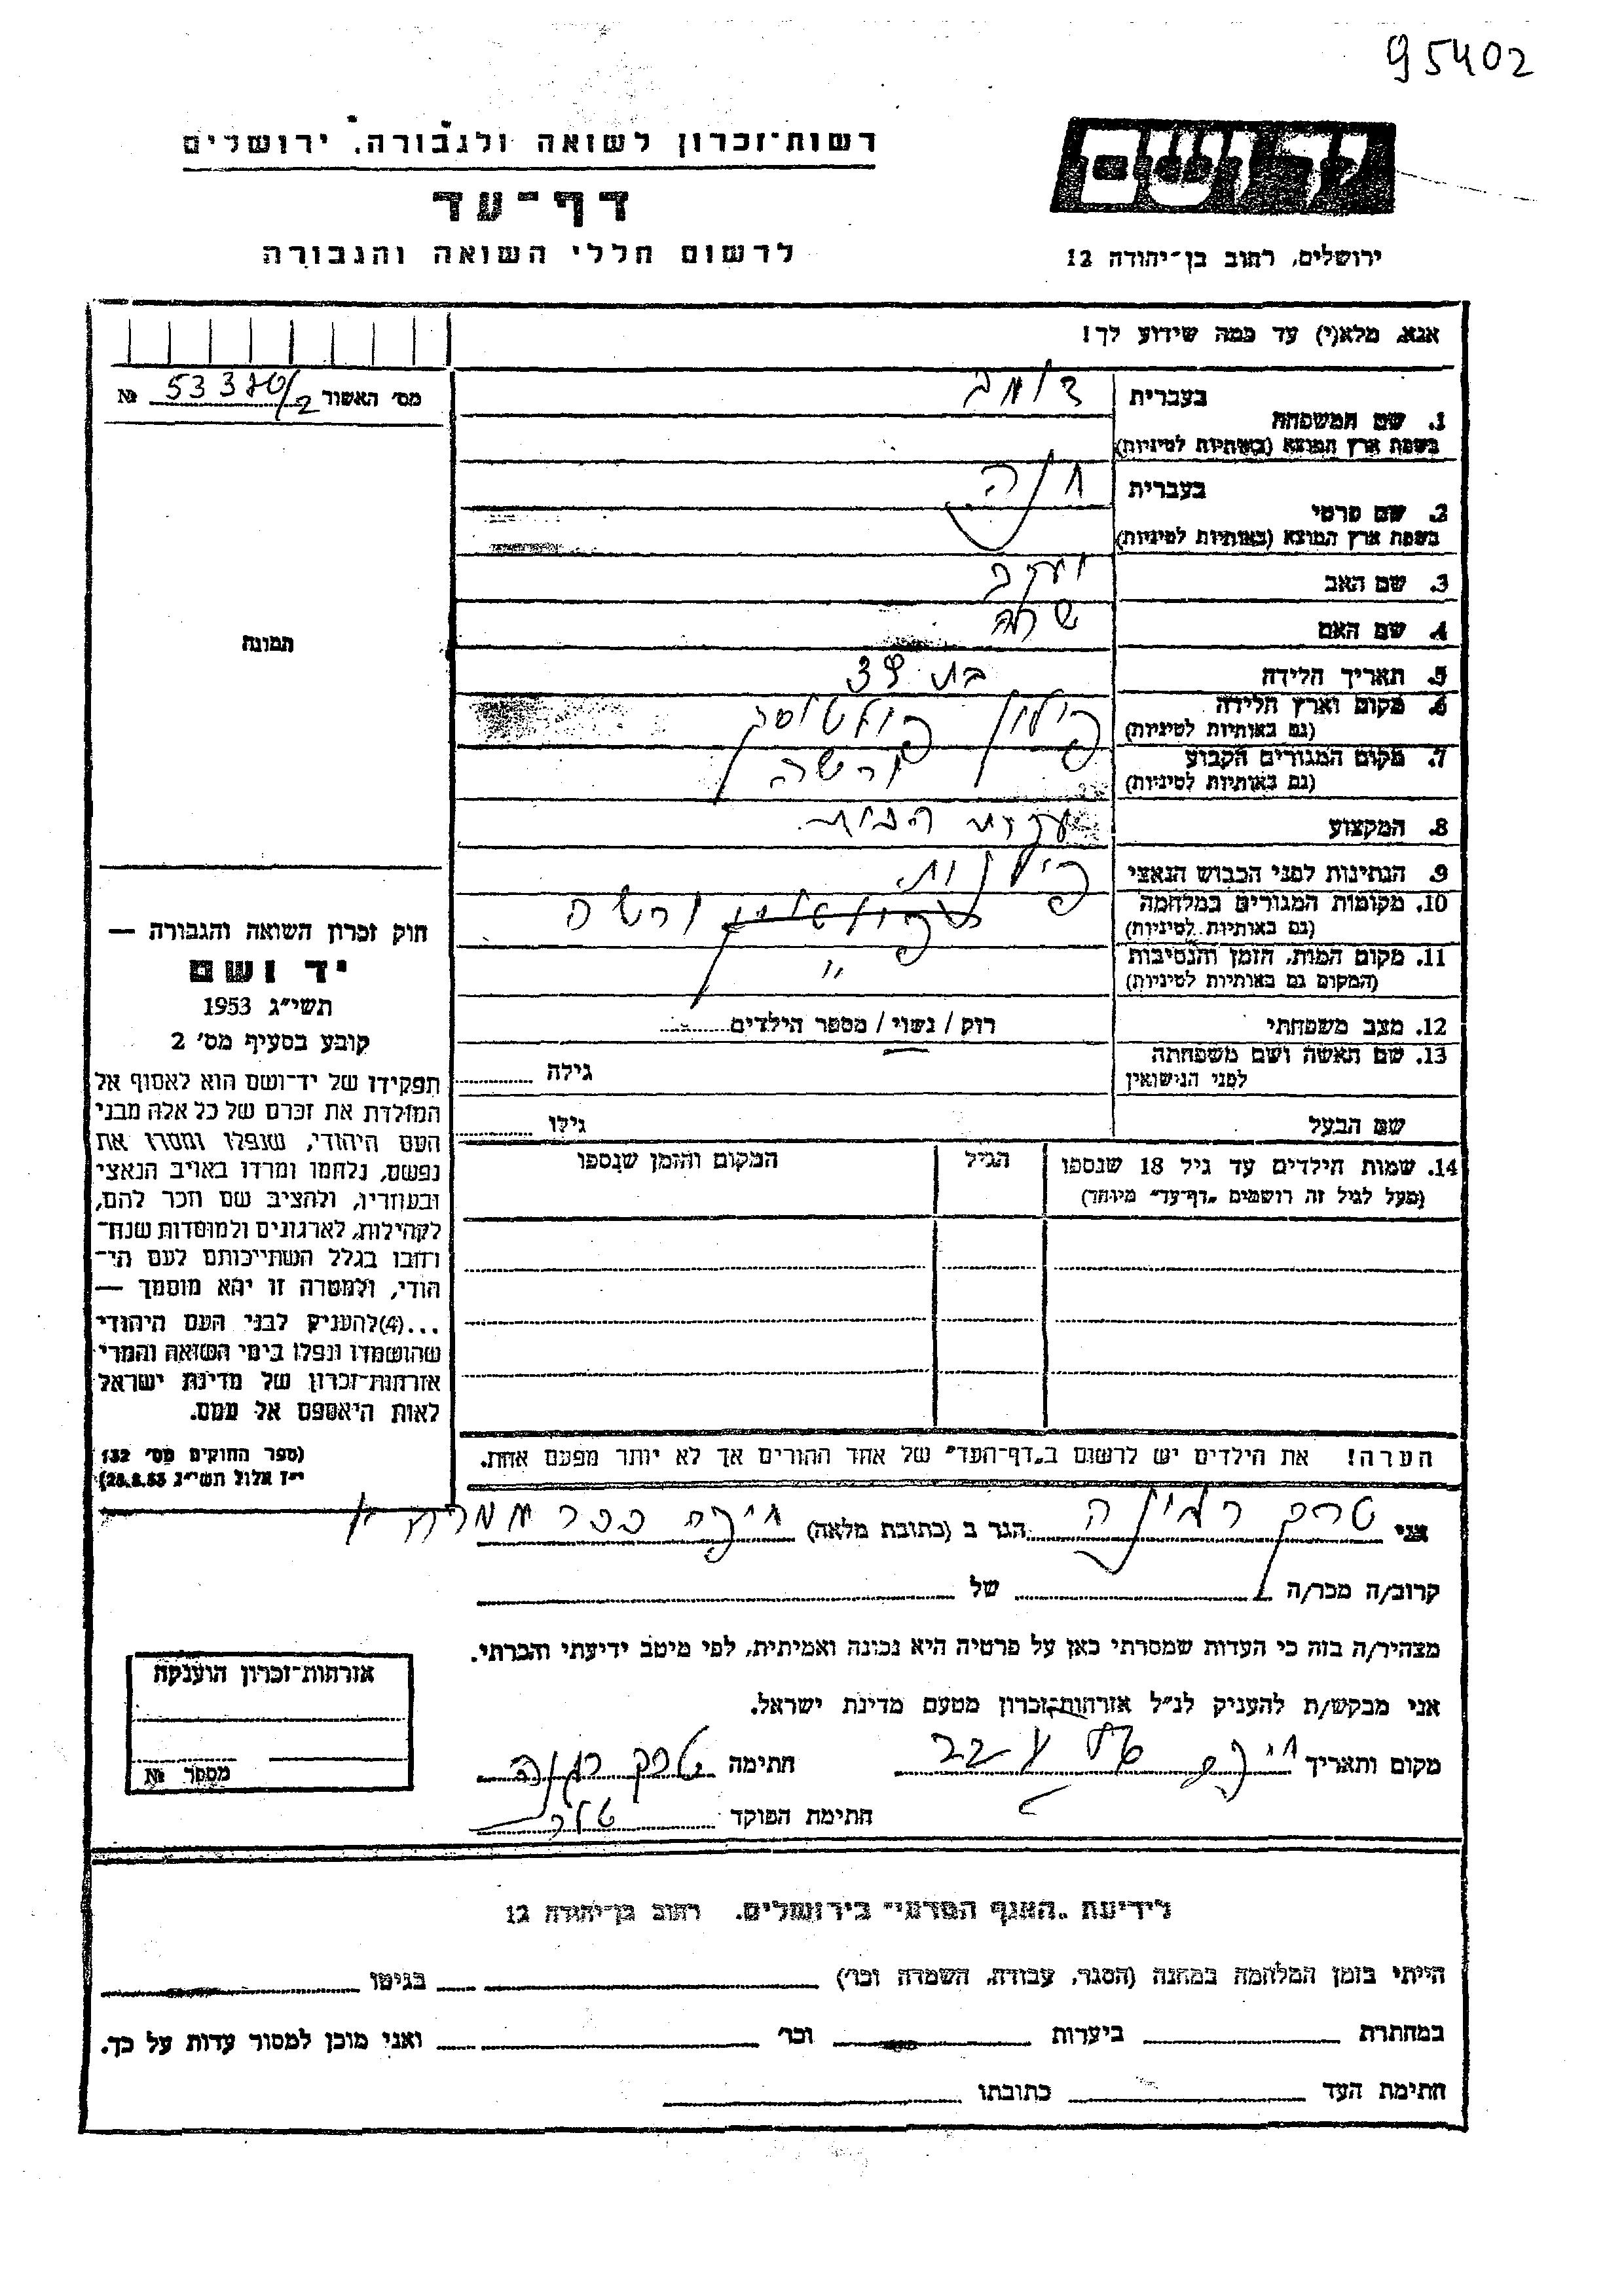 95402
רשות־זכרון לשואה ולגבורה, ירושלים
דף־עד
לרשום חללי השואה והגבורה
ירושלים, רחוב בן־יהודה 12
אנא, מלא(י) עד כמה שידוע לך!
מס׳ האשור № 53370/2
1. שם המשפחה
בעברית
בשפת ארץ המוצא (באותיות לטיניות)
2. שם פרטי
בעברית חנה
בשפת ארץ המוצא (באותיות לטיניות)
3. שם האב יעקב
4. שם האם שרה
5. תאריך הלידה בת
6. מקום וארץ הלידה פולין
(גם באותיות לטיניות)
7. מקום המגורים הקבוע ורשה
(גם באותיות לטיניות)
8. המקצוע עקרת הבית
9. הנתינות לפני הכבוש הנאצי פולנית
10. מקומות המגורים במלחמה ורשה
(גם באותיות לטיניות)
11. מקום המות, הזמן והנסיבות "
(המקום גם באותיות לטיניות)
12. מצב משפחתי רווק / נשוי / מספר הילדים
13. שם האשה ושם משפחתה
לפני הנישואין
גילה
שם הבעל גילו
14. שמות הילדים עד גיל 18 שנספו
(מעל לגיל זה רושמים „דף־עד" מיוחד)
הגיל
המקום והזמן שנספו
הערה! את הילדים יש לרשום ב„דף־העד" של אחד ההורים אך לא יותר מפעם אחת.
תמונה
חוק זכרון השואה והגבורה —
יד ושם
תשי"ג 1953
קובע בסעיף מס׳ 2
תפקידו של יד־ושם הוא לאסוף אל
המולדת את זכרם של כל אלה מבני
העם היהודי, שנפלו ומסרו את
נפשם, נלחמו ומרדו באויב הנאצי
ובעוזריו, ולהציב שם וזכר להם,
לקהילות, לארגונים ולמוסדות שנח־
רבו בגלל השתייכותם לעם הי־
הודי, ולמטרה זו יהא מוסמך —
...(4) להעניק לבני העם היהודי
שהושמדו ונפלו בימי השואה והמרי
אזרחות־זכרון של מדינת ישראל
לאות היאספם אל עמם.
(ספר החוקים מס׳ 132
י"ז אלול תשי"ג 28.8.53)
אני טרק הגר ב (כתובת מלאה) חיפה
קרוב/ה מכר/ה של
מצהיר/ה בזה כי העדות שמסרתי כאן על פרטיה היא נכונה ואמיתית, לפי מיטב ידיעתי והכרתי.
אני מבקש/ת להעניק לנ"ל אזרחות־זכרון מטעם מדינת ישראל.
מקום ותאריך חיפה חתימה טרק
חתימת הפוקד
אזרחות־זכרון הוענקה
מספר №
לידיעת „האגף המדעי" בירושלים, רחוב בן־יהודה 12
הייתי בזמן המלחמה במחנה (הסגר, עבודה, השמדה וכו׳) בגיטו
במחתרת ביערות וכו׳ ואני מוכן למסור עדות על כך.
חתימת העד כתובתו